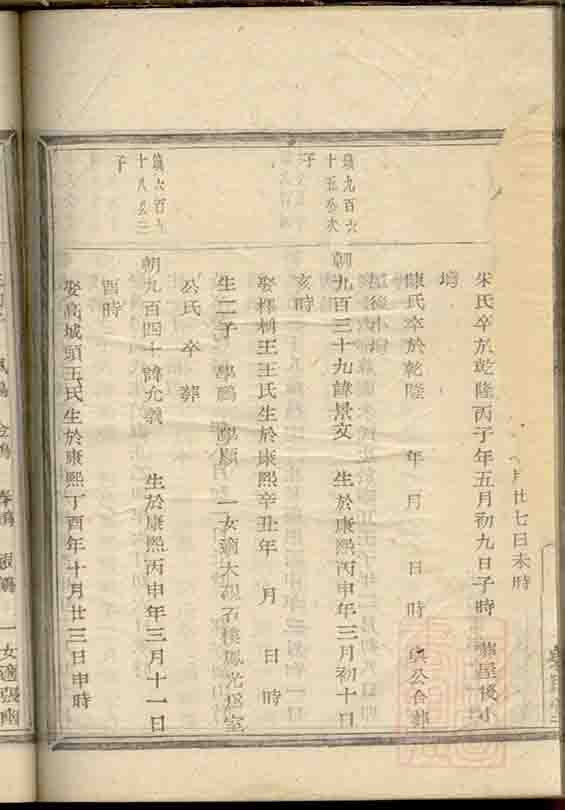 月廿七日未時
朱氏卒於乾隆丙子年五月初九日子時 葬屋後小
塆
陳氏卒於乾隆 年 月 日 時 與公合葬
屋後小塆
鎮九百六
十五公次
子
朝九百三十九諱景文 生於康熙丙申年三月初十日
亥時
娶 王王氏生於康熙辛丑年 月 日 時
生二子 學鵬 學順 一女適大 石橋 光 室
公氏 卒 葬
鎮六百
十八公
子
朝九百四十諱允義 生於康熙丙申年三月十一日
酉時
娶高城頭王氏生於康熙丁酉年十月廿三日申時
一女適張